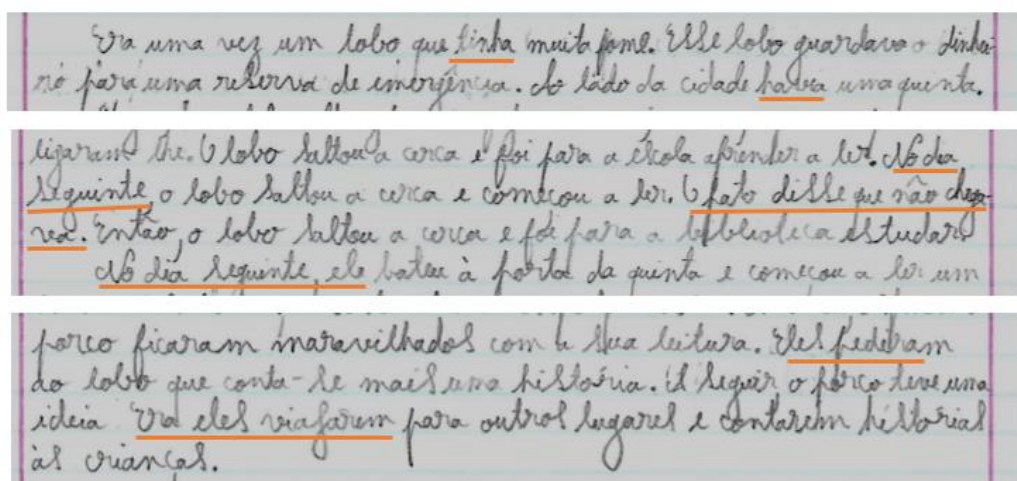 Era uma vez um lobo que tinha muita fome. Esse lobo guardava o dinhei-
ro para uma reserva de emergência. Ao lado da cidade havia uma quinta.
ligaram lhe. O lobo saltou a cerca e foi para a escola aprender a ler. No dia
seguinte, o lobo saltou a cerca e começou a ler. O pato disse que não chega-
va. Então, o lobo saltou a cerca e foi para a biblioteca estudar.
No dia seguinte, ele bateu à porta da quinta e começou a ler um
porco ficaram maravilhados com a sua leitura. Eles pederam
ao lobo que conta-se mais uma história. A seguir o porco teve uma
ideia Era eles viajarem para outros lugares e contarem histórias
às crianças.